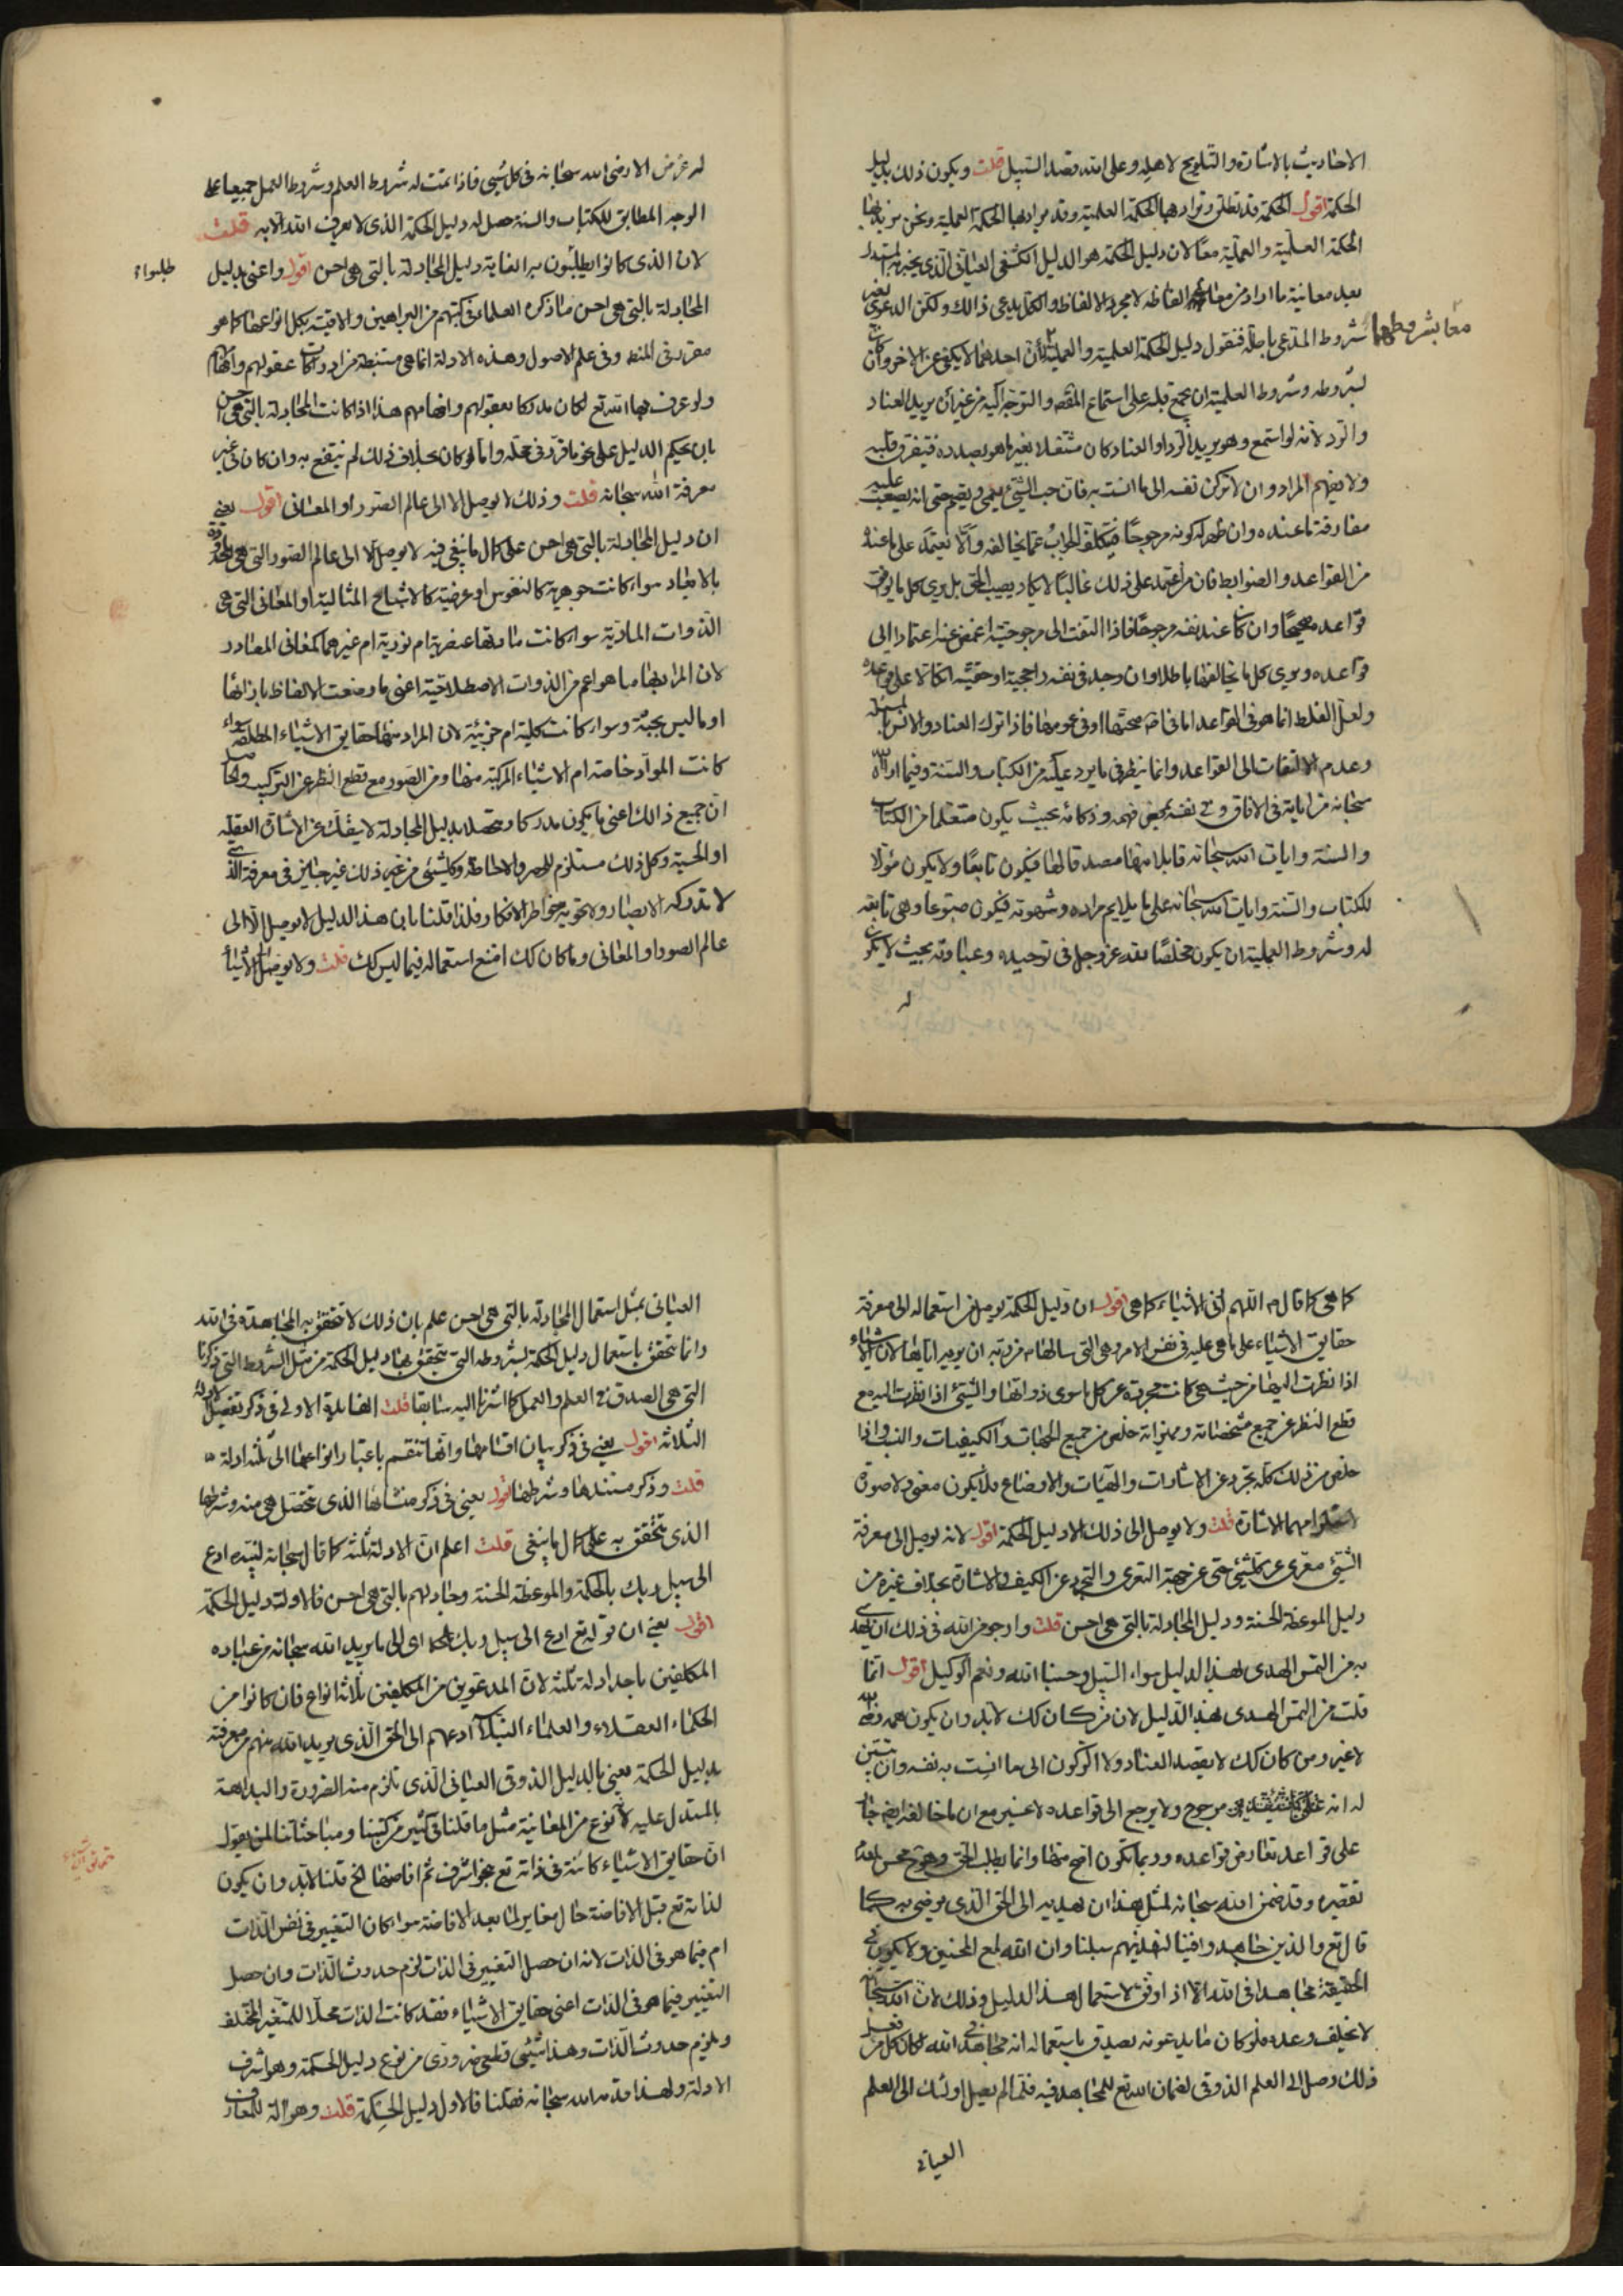 الاحاديث بالاشارة والتلويح لاهله وعلى الله قصد السبيل قلت ويكون ذلك بدليل
الحكمة اقول الحكمة قد تطلق ويراد بها الحكمة العلمية وقد يراد بها الحكمة العملية ونحن نريد بها
الحكمة العلمية والعملية معا لان دليل الحكمة هو الدليل الكشفي العياني الذي يخبر به المستدل
بعد معاينة ما اراد من معاني الفاظه لا مجرد الالفاظ والكل يدعي ذالك ولكن الدعوى بغير
شروط المدعى باطلة فنقول دليل الحكمة العلمية والعملية لان احدهما لا يكفي عن الاخر وان كان
معا بشروطهما
لشروطه وشروط العلمية ان يجمع قلبه على استماع المقصد والتوجه اليه من غير ان يريد العناد
والرد لانه لو استمع وهو يريد الرد او العناد كان مشتغلا بغير ما هو بصدده فيتفرق قلبه
ولا يفهم المراد وان لا تركن نفسه الى ما انست به فان حب الشئ يعمي ويصم حتى انه يصعب عليه
مفارقة ما عنده وان ظهر له كونه مرجوحا فيتكلف الجواب عما يخالفه والا يعتمد على ما عنده
من القواعد والضوابط فان من اعتمد على ذلك غالبا لا يكاد يصيب الحق بل يرى كل ما يوافق
قواعده صحيحا وان كان عند نفسه مرجوحا فاذا التفت الى مرجوحيته اغمض عنه اعتمادا الى
قواعده ويرى كل ما يخالفها باطلا وان وجد في نفسه راجحية او حقية اتكالا على قواعده
ولعل الغلط انما هو في القواعد اما في اصل صحتها او في عمومها فاذا ترك العناد والانس بالمسئلة
وعدم الالتفات الى القواعد وانما ينظر في ما يرد عليه من الكتاب والسنة وفيما اراه الله
سبحانه من اياته في الافاق وفي نفسه بمحض فهمه وذكائه بحيث يكون متعلما من الكتاب
والسنة وايات الله سبحانه قابلا منها مصدقا لها فيكون تابعا ولا يكون مؤولا
للكتاب والسنة وايات الله سبحانه على ما يلايم مراده وشهوته فيكون متبوعا وهي تابعة
له وشروط العملية ان يكون مخلصا لله عز وجل في توحيده وعبادته بحيث لا يكون
له
له غرض الا رضى الله سبحانه في كل شئ فاذا تمت له شروط العلم وشروط العمل جميعا على
الوجه المطابق للكتاب والسنة حصل له دليل الحكمة الذي لا يعرف الله الا به قلت
لان الذي كانوا يطلبون به الغاية دليل المجادلة بالتي هي احسن اقول واعني بدليل
طلبوا
المجادلة بالتي هي احسن ما ذكره العلماء في كتبهم من البراهين والاقيسة بكل انواعها كما هو
مقرر في المنطق وفي علم الاصول وهذه الادلة انما هي مستنبطة من ادراكات عقولهم وافهامهم
ولو عرف بها الله تع لكان مدركا بعقولهم وافهامهم هذا اذا كانت المجادلة بالتي هي احسن
بان يحكم الدليل على نحو ما قرر في محله واما لو كان بخلاف ذلك لم ينتفع به وان كان في غير
معرفة الله سبحانه قلت وذلك لا يوصل الا الى عالم الصور او المعاني اقول يعني
ان دليل المجادلة بالتي هي احسن على كمال ما ينبغي فيه لا يوصل الا الى عالم الصور التي هي المحدودة
بالابعاد سواء كانت جوهرية كالنفوس او عرضية كالاشباح المثالية او المعاني التي هي
الذوات المادية سواء كانت مادتها عنصرية ام نورية ام غيرهما كمعاني المصادر
لان المراد بها ما هو اعم من الذوات الاصطلاحية اعني ما وضعت الالفاظ بازائها
او ما ليس بجثة وسواء كانت كلية ام جزئية لان المراد منها حقايق الاشياء المطلقة سواء
كانت المواد خاصة ام الاشياء المركبة منها ومن الصور مع قطع النظر عن التركيب
ان جميع ذالك اعني ما يكون مدركا ومتحصلا بدليل المجادلة لا ينفك عن الاشارة العقلية
او الحسية وكل ذلك مستلزم للحصر والاحاطة وكل شئ من غير ذلك غير جائز في معرفة الذي
لا تدركه الابصار ولا تحويه خواطر الافكار فلذا قلنا بان هذا الدليل لا يوصل الا الى
عالم الصور او المعاني وما كان كك امتنع استعماله فيما ليس كك قلت ولا يوصل الى الاشياء
كما هي كما قال ص اللهم ارني الاشياء كما هي اقول ان دليل الحكمة يوصل من استعماله الى معرفة
حقايق الاشياء على ما هي عليه في نفس الامر وهي التي سالها ص من ربه ان يريه اياها لان الاشياء
اذا نظرت اليها من حيث هي كانت مجردة عن كل ما سوى ذواتها والشئ اذا نظرت اليه مع
قطع النظر عن جميع مشخصاته ومميزاته خلص من جميع الجهات والكيفيات والنسب واذا
خلص من ذلك كله تجرد عن الاشارات والهيئات والاوضاع فلا يكون معنى ولا صورة
لاستلزامهما الاشارة قلت ولا يوصل الى ذلك الا دليل الحكمة اقول لانه يوصل الى معرفة
الشئ معرى عن كل شئ حتى عن جهة التعري والتجرد عن الكيف والاشارة بخلاف غيره من
دليل الموعظة الحسنة ودليل المجادلة بالتي هي احسن قلت وارجو من الله في ذلك ان يهدي
به من التمس الهدى بهذا الدليل سواء السبيل وحسبنا الله ونعم الوكيل اقول انما
قلت من التمس الهدى بهذا الدليل لان من كان كك لابد وان يكون همه
لا غير ومن كان كك لا يقصد العناد ولا الركون الى ما انست به نفسه وان تبين
له انه مرجوح ولا يرجع الى قواعده لا غير مع ان ما خالفه
على قواعد تعارض قواعده وربما تكون اصح منها وانما يطلب الحق
تقصيره وقد ضمن الله سبحانه لمثل هذا ان يهديه الى الحق الذي يرضى به كما
قال تع والذين جاهدوا فينا لنهدينهم سبلنا وان الله لمع المحسنين ولا يكون في
الحقيقة مجاهدا في الله الا اذا وفق لاستعمال هذا الدليل وذلك لان الله سبحانه
لا يخلف وعده فلو كان ما يدعونه يصدق باستعماله انه مجاهد في الله لكان كل من فعل
ذلك وصل الى العلم الذوقي لضمان الله تع للمجاهد فيه فلما لم يصل اولئك الى العلم
العياني
العياني بمثل استعمال المجادلة بالتي هي احسن علم بان ذلك لا تتحقق به المجاهدة في الله
وانما تتحقق باستعمال دليل الحكمة بشروطه التي يتحقق بها دليل الحكمة من مثل الشروط التي ذكرنا
التي هي الصدق في العلم والعمل كما اشرنا اليه سابقا قلت الفائدة الاولى في ذكر تقصيم الادلة
الثلاثة اقول يعني في ذكر بيان اقسامها وانها تنقسم باعتبار انواعها الى ثلثة ادلة
قلت وذكر مستندها وشرطها اقول يعني في ذكر منشائها الذي تتحصل هي منه وشرطها
الذي تتحقق به على كمال ما ينبغي قلت اعلم ان الادلة ثلثة كما قال سبحانه لنبيه ادع
الى سبيل ربك بالحكمة والموعظة الحسنة وجادلهم بالتي هي احسن فالاول دليل الحكمة
اقول يعني ان قوله تع ادع الى سبيل ربك اي الى ما يريد الله سبحانه من عباده
المكلفين باحد ادلة ثلثة لان المدعوين من المكلفين ثلاثة انواع فان كانوا من
الحكماء العقلاء والعلماء النبلاء ادعهم الى الحق الذي يريد الله منهم من معرفته
بدليل الحكمة يعني بالدليل الذوقي العياني الذي تلزم منه الضرورة والبداهة
بالمستدل عليه لانه نوع من المعاينة مثل ما قلنا في كثير من كتبنا ومباحثاتنا لمن يقول
ان حقايق الاشياء كائنة في ذاته تع بنحو اشرف ثم افاضها الخ قلنا لابد وان يكون
لذاته تع قبل الافاضة حال مغاير لما بعد الافاضة سواء كان التغيير في نفس الذات
ام فيما هو في الذات لانه ان حصل التغيير في الذات لزم حدوث الذات وان حصل
التغيير فيما هو في الذات اعني حقايق الاشياء فقد كانت الذات محلا للمتغير المختلف
ويلزم حدوث الذات وهذا شئ قطعي ضروري من نوع دليل الحكمة وهو اشرف
الادلة ولهذا قدمه الله سبحانه فهكذا فالاول دليل الحكمة قلت وهو الة للمعارف